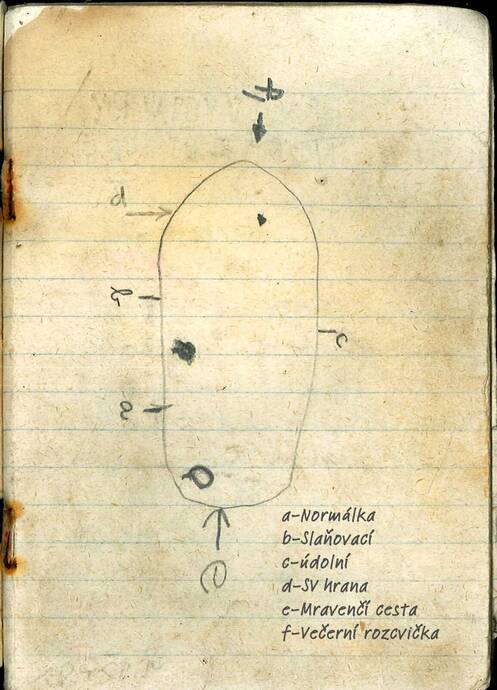 f
d
b
c
a
e
a-Normálka
b-Slaňovací
c-údolní
d-SV hrana
e-Mravenčí cesta
f-Večerní rozcvička